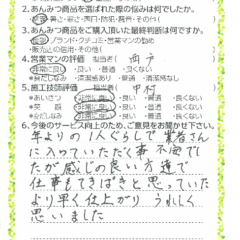 2.あんみつ商品を選ばれた際の悩みは何でしたか。
暑さ・寒さ・西日・防犯・騒音・その他( )
3.あんみつ商品をご購入頂いた最終判断は何ですか。
ブランド・クチコミ・営業マンの勧め
販売店の信用・その他( )
4.営業マンの評価 担当者( )
非常に良い ・良い ・普通 ・又くない
5.施工技師評価 担当者( 中村 )
*あいさつ 非常に良い ・良い ・普通 ・良くない
*笑顔 非常に良い ・良い ・普通 ・良くない
*身だしなみ 非常に良い ・良い ・普通 ・良くない
6.今後のサービス向上のため、ご意見をお聞かせ下さい。
年よりの1人ぐらしで業者さん
に入っていただく事不安でし
たが感じの良い方達で
仕事もてきぱきと思っていた
より早く仕上がりうれしく
思いました